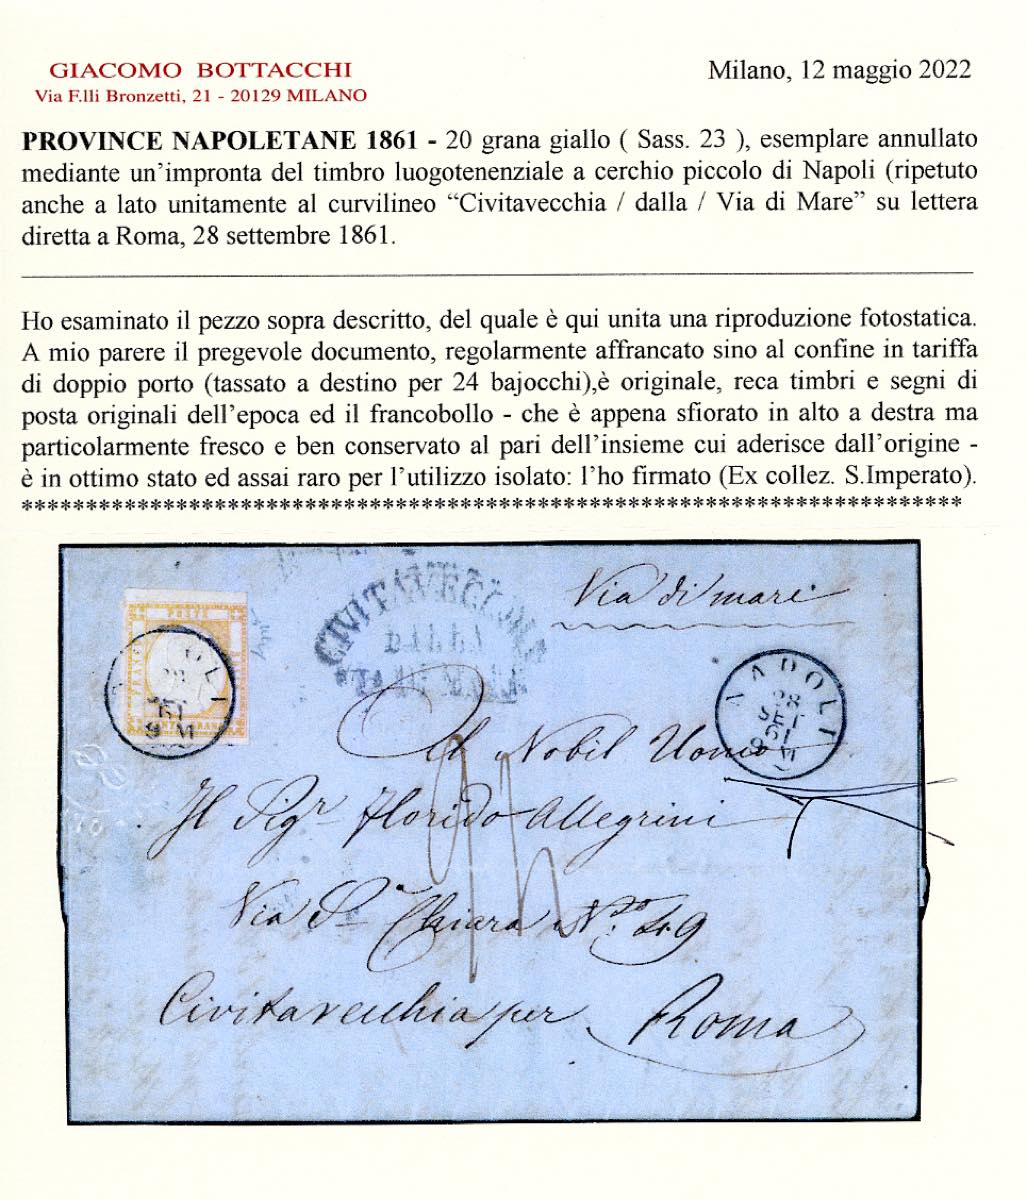 GIACOMO BOTTACCHI
Via F.lli Bronzetti, 21 - 20129 MILANO
Milano, 12 maggio 2022
PROVINCE NAPOLETANE 1861 - 20 grana giallo ( Sass. 23 ), esemplare annullato
mediante un’impronta del timbro luogotenenziale a cerchio piccolo di Napoli (ripetuto
anche a lato unitamente al curvilineo “Civitavecchia / dalla / Via di Mare” su lettera
diretta a Roma, 28 settembre 1861.
Ho esaminato il pezzo sopra descritto, del quale è qui unita una riproduzione fotostatica.
A mio parere il pregevole documento, regolarmente affrancato sino al confine in tariffa
di doppio porto (tassato a destino per 24 bajocchi),è originale, reca timbri e segni di
posta originali dell’epoca ed il francobollo - che è appena sfiorato in alto a destra ma
particolarmente fresco e ben conservato al pari dell’insieme cui aderisce dall’origine -
è in ottimo stato ed assai raro per l’utilizzo isolato: l’ho firmato (Ex collez. S.Imperato).
*****************************************************************************
CIVITAVECCHIA
dalla
Via di mare
POSTE
NAPOLI
28
SET
Al Nobil Uomo
Il Sigr Florido Allegrini
Via Sa Chiara No 49
Civitavecchia per Roma